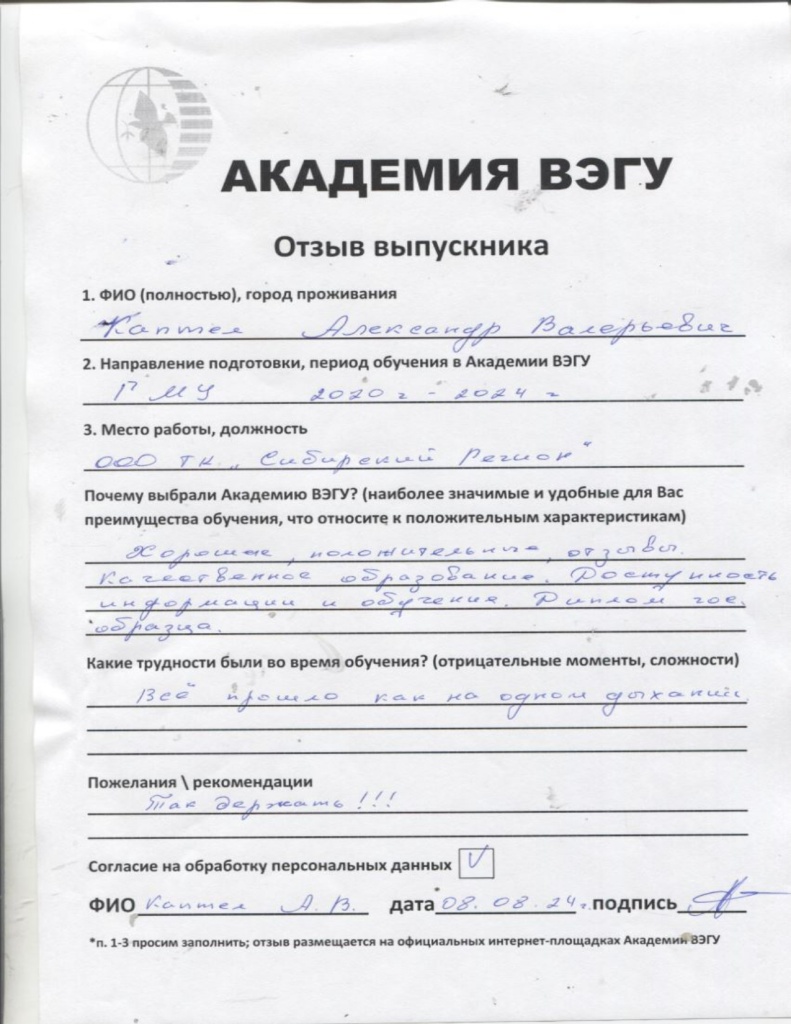 АКАДЕМИЯ ВЭГУ
Отзыв выпускника
1. ФИО (полностью), город проживания
Каптел Александр Валерьевич
2. Направление подготовки, период обучения в Академии ВЭГУ
ГМУ 2020 г - 2024 г
3. Место работы, должность
ООО ТК „Сибирский Регион"
Почему выбрали Академию ВЭГУ? (наиболее значимые и удобные для Вас
преимущества обучения, что относите к положительным характеристикам)
Хорошие, положительные, отзывы.
Качественное образование. Доступность
информации и обучения. Диплом гос.
образца.
Какие трудности были во время обучения? (отрицательные моменты, сложности)
Всё прошло как на одном дыхании.
Пожелания \ рекомендации
Так держать!!!
Согласие на обработку персональных данных V
ФИО Каптел А. В. дата 08.08.24г. подпись
*п. 1-3 просим заполнить; отзыв размещается на официальных интернет-площадках Академии ВЭГУ